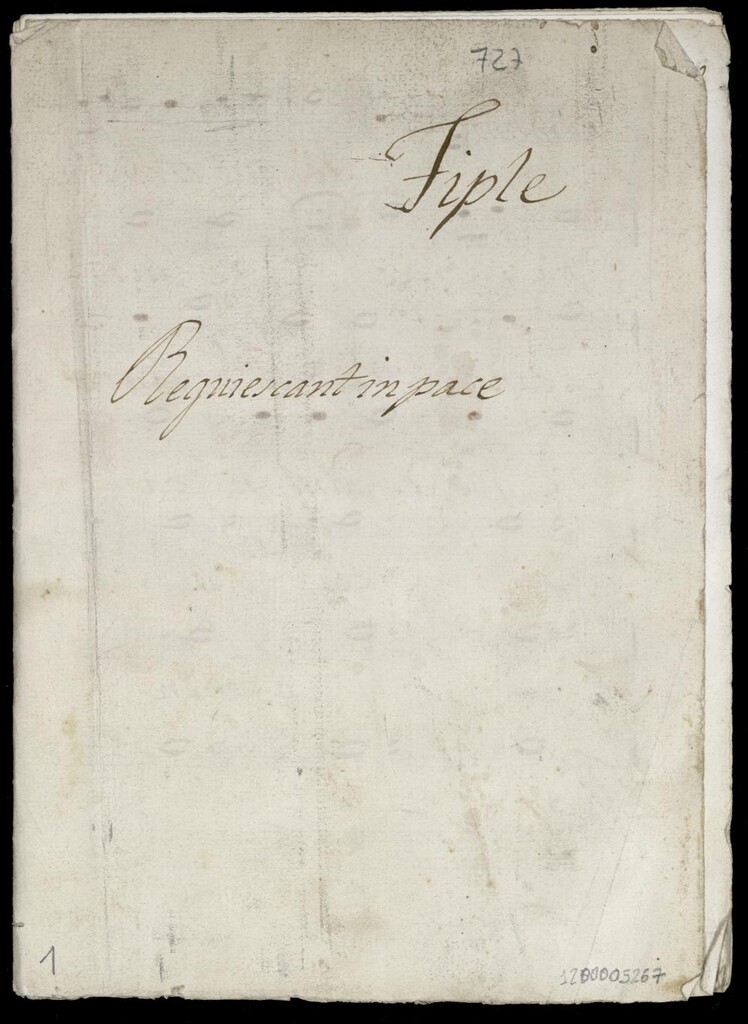 727
Tiple
Requiescant in pace
1
1200005267